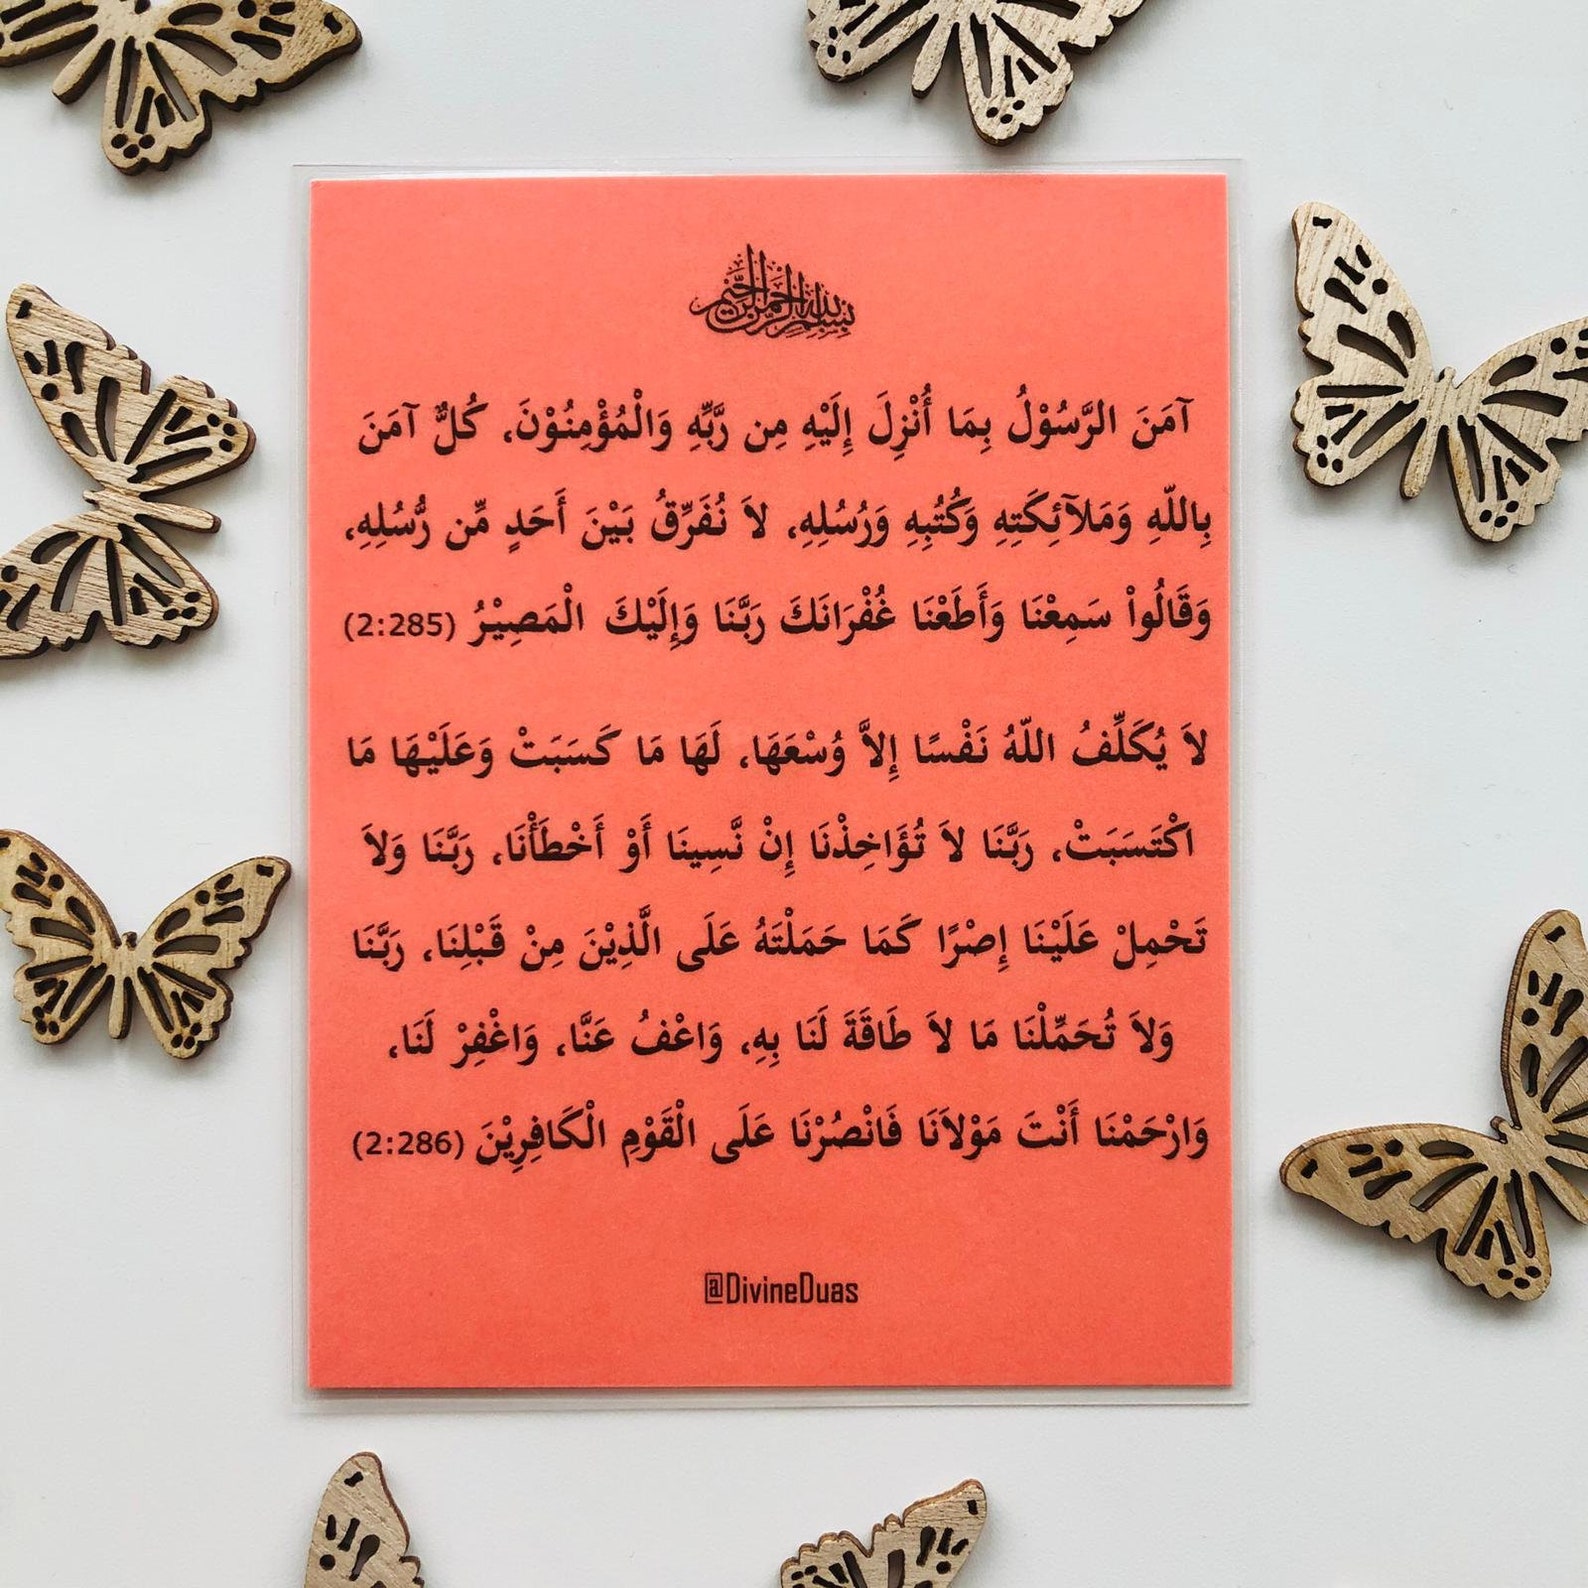 بِسْمِ اللهِ الرَّحْمٰنِ الرَّحِيْمِ
آمَنَ الرَّسُوْلُ بِمَا أُنْزِلَ إِلَيْهِ مِن رَّبِّهِ وَالْمُؤْمِنُوْنَ، كُلٌّ آمَنَ
بِاللّهِ وَمَلآئِكَتِهِ وَكُتُبِهِ وَرُسُلِهِ، لاَ نُفَرِّقُ بَيْنَ أَحَدٍ مِّن رُّسُلِهِ،
وَقَالُواْ سَمِعْنَا وَأَطَعْنَا غُفْرَانَكَ رَبَّنَا وَإِلَيْكَ الْمَصِيْرُ (2:285)
لاَ يُكَلِّفُ اللّهُ نَفْسًا إِلاَّ وُسْعَهَا، لَهَا مَا كَسَبَتْ وَعَلَيْهَا مَا
اكْتَسَبَتْ، رَبَّنَا لاَ تُؤَاخِذْنَا إِنْ نَّسِينَا أَوْ أَخْطَأْنَا، رَبَّنَا وَلاَ
تَحْمِلْ عَلَيْنَا إِصْرًا كَمَا حَمَلْتَهُ عَلَى الَّذِيْنَ مِنْ قَبْلِنَا، رَبَّنَا
وَلاَ تُحَمِّلْنَا مَا لاَ طَاقَةَ لَنَا بِهِ، وَاعْفُ عَنَّا، وَاغْفِرْ لَنَا،
وَارْحَمْنَا أَنْتَ مَوْلاَنَا فَانْصُرْنَا عَلَى الْقَوْمِ الْكَافِرِيْنَ (2:286)
@DivineDuas